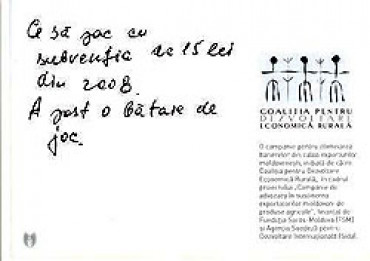 Ce să fac cu
subvenția de 15 lei
din 2008.
A fost o bătaie de
joc.
COALIȚIA PENTRU
DEZVOLTARE
ECONOMICĂ RURALĂ
O campanie pentru eliminarea
barierelor din calea exporturilor
moldovenești, inițiată de către
Coaliția pentru Dezvoltare
Economică Rurală, în cadrul
proiectului „Campanie de
advocacy în susținerea
exportatorilor moldoveni de
produse agricole", finanțat de
Fundația Soros-Moldova (FSM)
și Agenția Suedeză pentru
Dezvoltare Internațională (Sida).